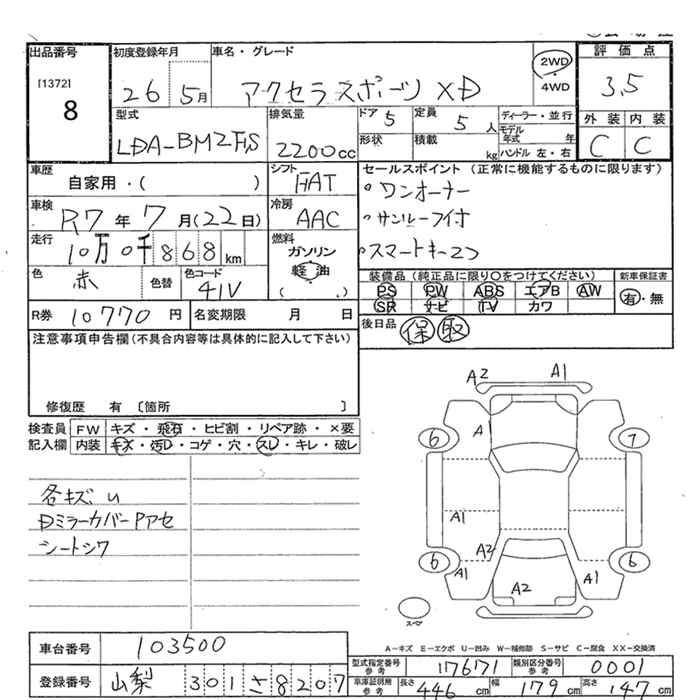 出品番号 初度登録年月 車名・グレード 評価点
[1372] 8 26 5月 アクセラスポーツ XD 2WD・4WD 3.5
型式 排気量 ドア 5 定員 5人 ディーラー・並行 外装 内装
LDA-BM2FS 2200cc 形状 積載 kg モデル年式 年 ハンドル 左・右 C C
車歴 シフト セールスポイント (正常に機能するものに限ります)
自家用・( ) FAT ・ワンオーナー
車検 R7年7月(22日) 冷房 AAC ・サンルーフ付
走行 10万0千868km 燃料 ガソリン 軽油 ( . ) ・スマートキー2コ
色 赤 色替 色コード 41V
装備品 (純正品に限り○をつけてください) 新車保証書
PS PW ABS エアB AW 有・無
SR ナビ TV カワ
R券 10770円 名変期限 月 日 後日品 保 取
注意事項申告欄 (不具合内容等は具体的に記入して下さい)
修復歴 有 [箇所 ]
検査員 FW キズ・飛石・ヒビ割・リペア跡・×要
記入欄 内装 キズ・汚レ・コゲ・穴・スレ・キレ・破レ
A2 A1
A
6 7
各キズ U
DミラーカバーPアセ
シートシワ
A1
A2
6 6
A1 A2 A1
スペア
A-キズ E-エクボ U-凹み W-補修跡 S-サビ C-腐食 XX-交換済
車台番号 103500 型式指定番号 参考 17671 類別区分番号 参考 0001
登録番号 山梨 301 さ 8207 車庫証明用 参考 長さ 446cm 幅 179cm 高さ 147cm